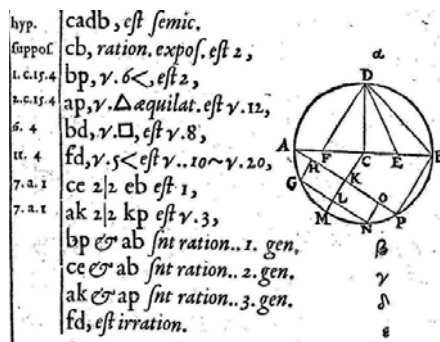 hyp. cadb, eſt ſemic.
ſuppoſ. cb, ration. expoſ. eſt 2,
1.c.15.4 bp, γ. 6<, eſt 2,
2.c.15.4 ap, γ. △ æquilat. eſt γ. 12,
6. 4 bd, γ. □, eſt γ. 8,
11. 4 fd, γ. 5< eſt γ.. 10~γ. 20,
7. a. 1 ce 2|2 eb eſt 1,
7. a. 1 ak 2|2 kp eſt γ. 3,
bp & ab ſnt ration.. 1. gen,
ce & ab ſnt ration.. 2. gen.
ak & ap ſnt ration.. 3. gen.
fd, eſt irration.
α
D
A F C E B
H K
G L O
M N P
β
γ
δ
ε